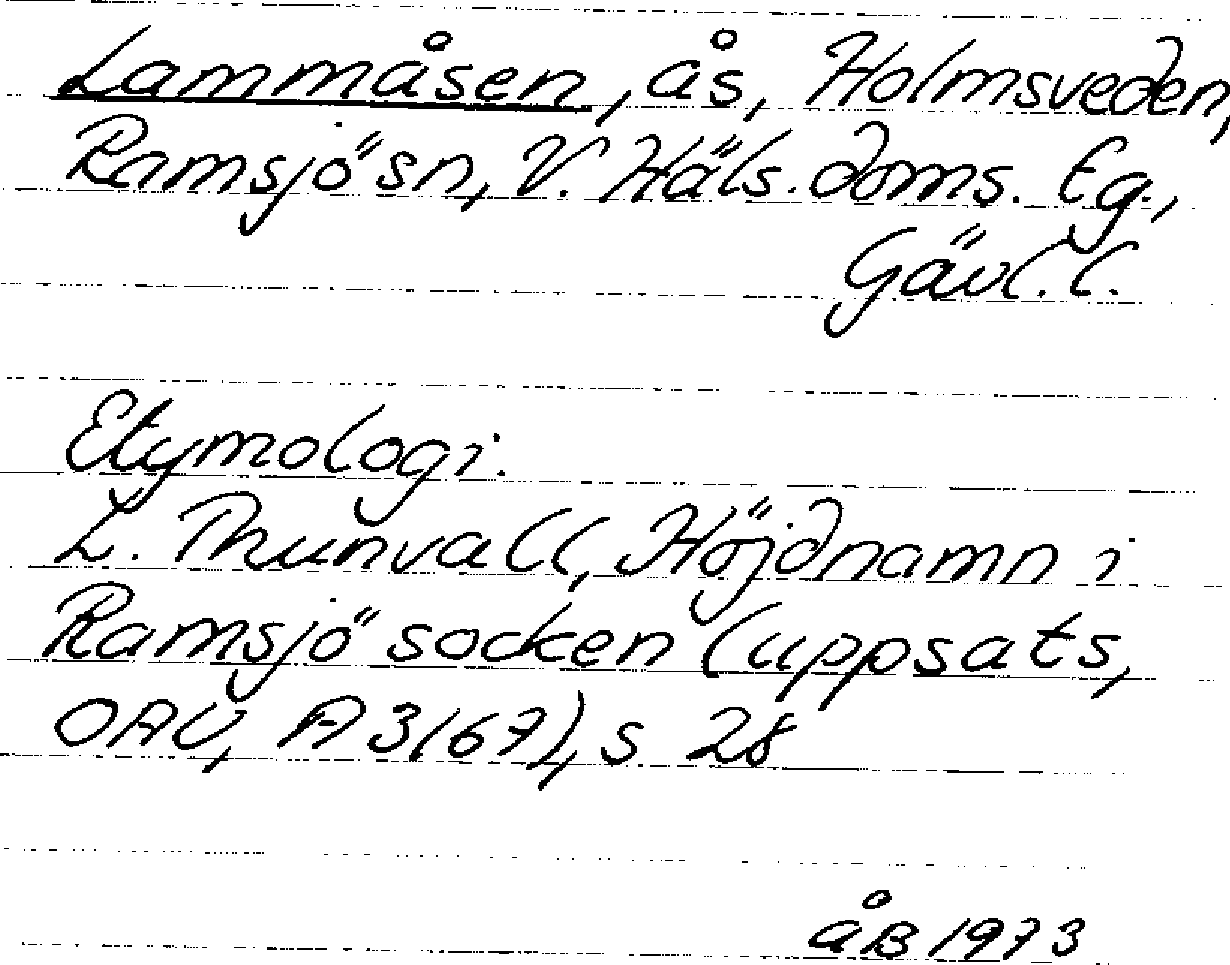 Lammåsen, ås, Holmsveden,
Ramsjö sn, V. Häls. doms. tg.,
Gävl. l.
Etymologi.
L. Thunvall, Höjdnamn i
Ramsjö socken (uppsats,
OAU, A 3167), s 28
åB 1973